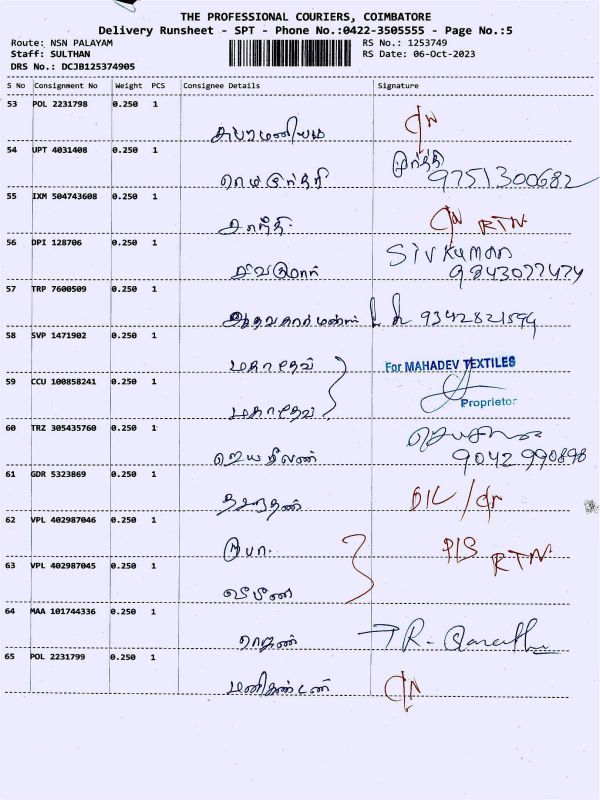 THE PROFESSIONAL COURIERS, COIMBATORE
Delivery Runsheet - SPT - Phone No.:0422-3505555 - Page No.:5
Route: NSN PALAYAM
RS No.: 1253749
Staff: SULTHAN
RS Date: 06-Oct-2023
DRS No.: DCJB125374905
S No Consignment No Weight PCS Consignee Details Signature
53 POL 2231798 0.250 1
சுப்ரமணியம்
54 UPT 4031408 0.250 1
மூர்த்தி
9751300682
55 IXM 504743608 0.250 1
RTN
56 DPI 128706 0.250 1
சிவகுமார் Sivkumar
9843077474
57 TRP 7600509 0.250 1
9342821594
58 SVP 1471902 0.250 1
மகாதேவ் For MAHADEV TEXTILES
59 CCU 100858241 0.250 1
மகாதேவ் Proprietor
60 TRZ 305435760 0.250 1
9042990898
61 GDR 5323869 0.250 1
D/L
62 VPL 402987046 0.250 1
தீபா. P/S RTN
63 VPL 402987045 0.250 1
64 MAA 101744336 0.250 1
65 POL 2231799 0.250 1
மணிகண்டன்